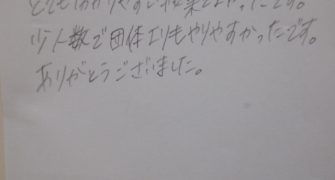 とてもわかりやすい授業でよかったです。
少人数で団体よりもやりやすかったです。
ありがとうございました。